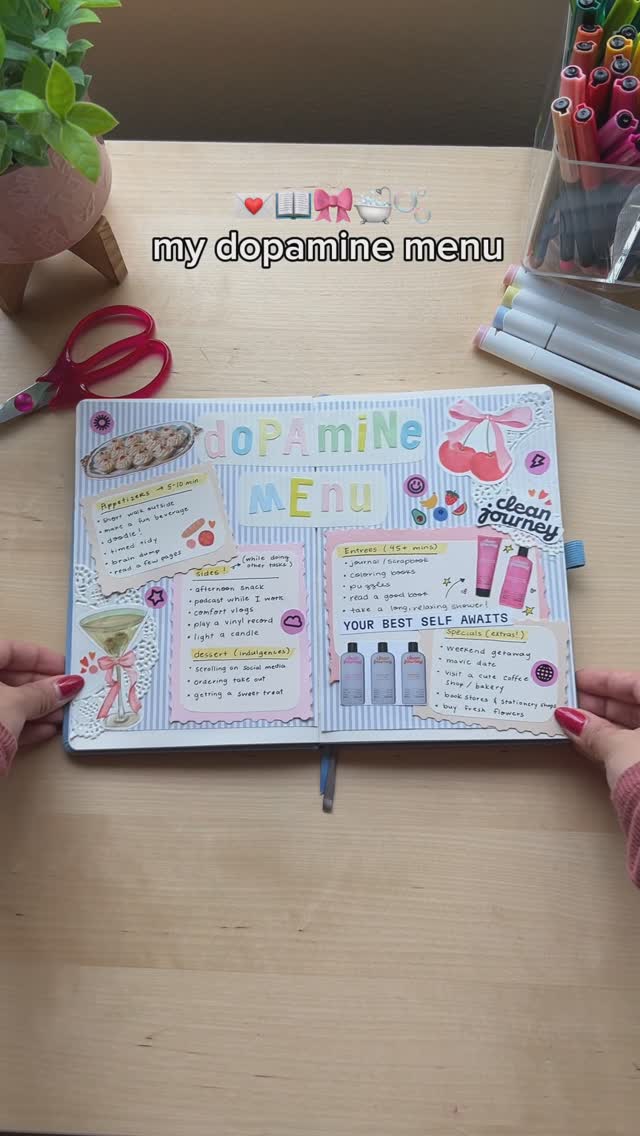 my dopamine menu
dOPAmiNe
mENu
Appetizers → 5-10 min
• short walk outside
• make a fun beverage
• doodle!
• timed tidy
• brain dump
• read a few pages
sides! (while doing other tasks)
• afternoon snack
• podcast while I work
• comfort vlogs
• play a vinyl record
• light a candle
dessert (indulgences)
• scrolling on social media
• ordering take out
• getting a sweet treat
clean
journey
Entrees (45+ mins)
• journal/scrapbook
• coloring books
• puzzles
• read a good book
• take a long, relaxing shower!
YOUR BEST SELF AWAITS
clean journey
clean journey
clean journey
Specials (extras!)
• weekend getaway
• movie date
• visit a cute coffee
shop/bakery
• book stores & stationery shops
• buy fresh flowers